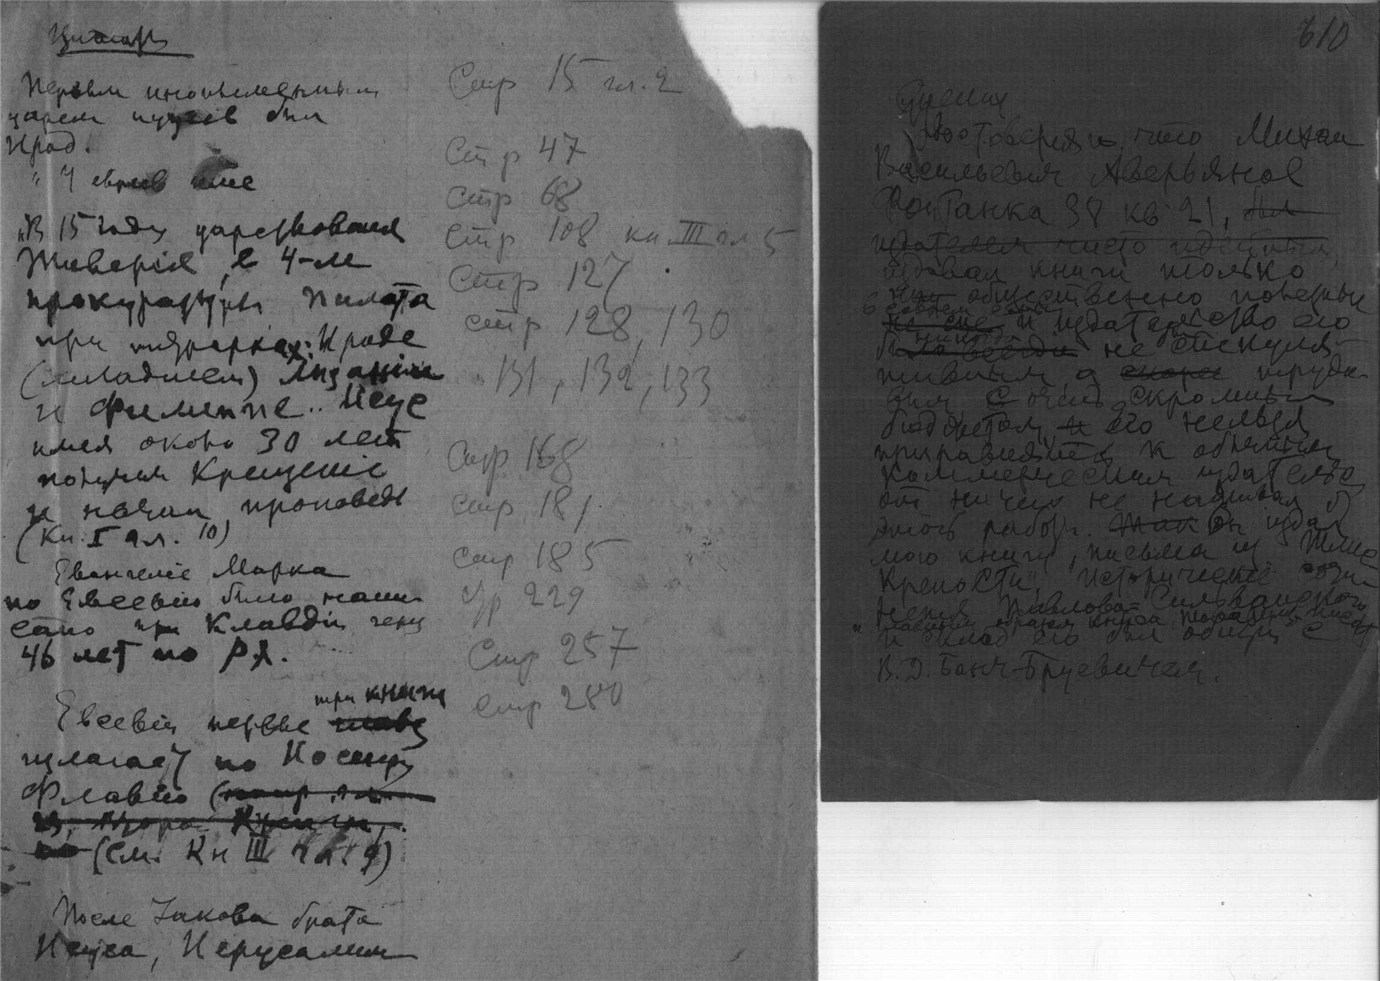 Цитаты
Первым иноплеменным
царем иудеев был
Ирод.
"В 15 году царствования
Тиверія, в 4-м
прокуратуры Пилата
при тетрархах: Ироде
(младшем) Лизаніи
и Филиппе.. Исус
имея около 30 лет
получил Крещеніе
и начал проповедь
(Кн. I гл. 10)
Евангеліе Марка
по Евсевію было напи
сано при Клавдіи
46 лет по Р.Х.
три книги
Евсевій первые главы
излагает по Иосифу
Флавію
(см. Кн III гл. 9)
После Іакова брата
Исуса, Иерусалим
Стр 15 гл. 2
Стр 47
Стр 68
Стр 108 кн. III гл 5
Стр 127
стр 128, 130
131, 132, 133
Стр 168
стр 181
стр 185
Стр 229
Стр 257
стр 280
610
Удостоверяю что Михаил
Васильевич Аверьянов
Фонтанка 38 кв 21, был
издателем чисто идейным,
издавал книги только
общественно полезные
и издательство его
не спекуля-
тивным а скорее трудо-
вым с очень скромным
бюджетом, и его нельзя
приравнять к обычным
коммерческим издательст
он ничего не наживал
этой работы. Так Он издал
мою книгу, письма из Шлис
Крепости, исторические сочи-
нения Павлова-Сильванского
и склад его был общий с
В.Д. Бонч-Бруевичем.